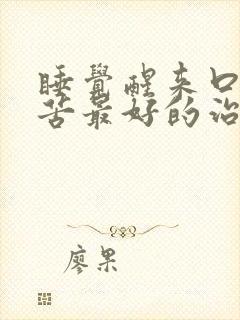 睡覺醒来口
苦最好的治
廖果